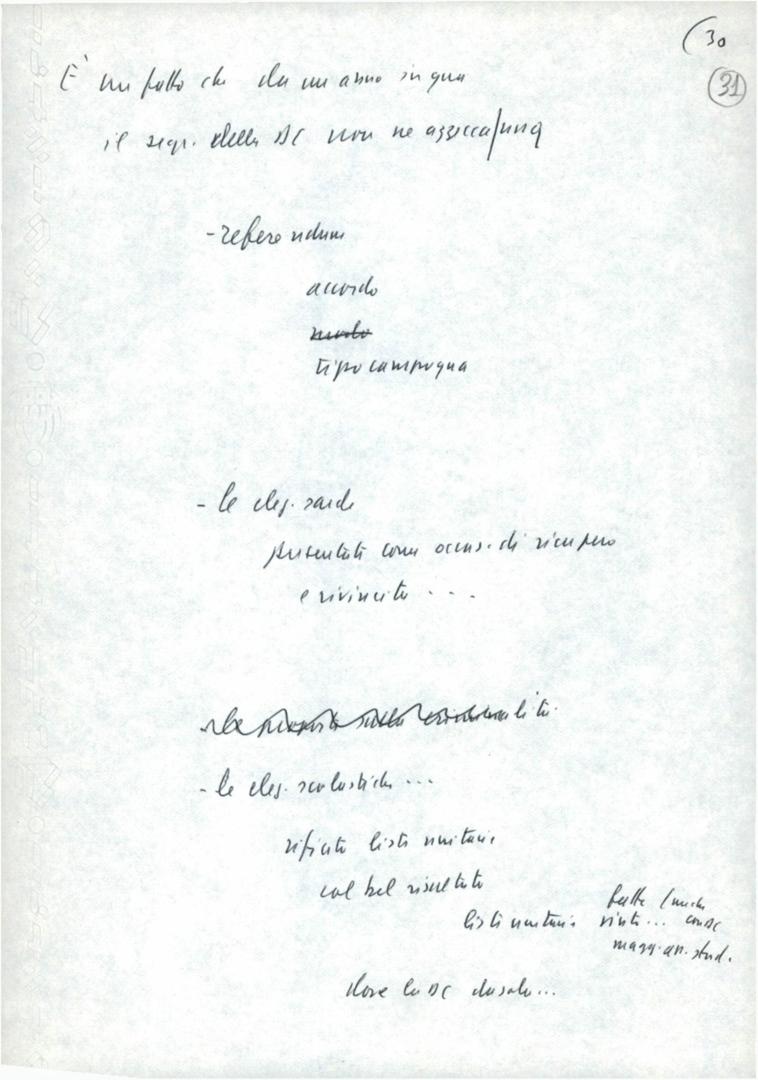 (30
31
È un fatto che da un anno in qua
il segr. della DC non ne azzecca/una
- referendum
accordo
tipo campagna
- le elez. sarde
presentate come occas. di recupero
e rivincita . . .
- le elez. scolastiche ...
rifiuto liste unitarie
col bel risultato
liste unitarie vinte... con DC
magg. an. stud.
dove la DC da sola...